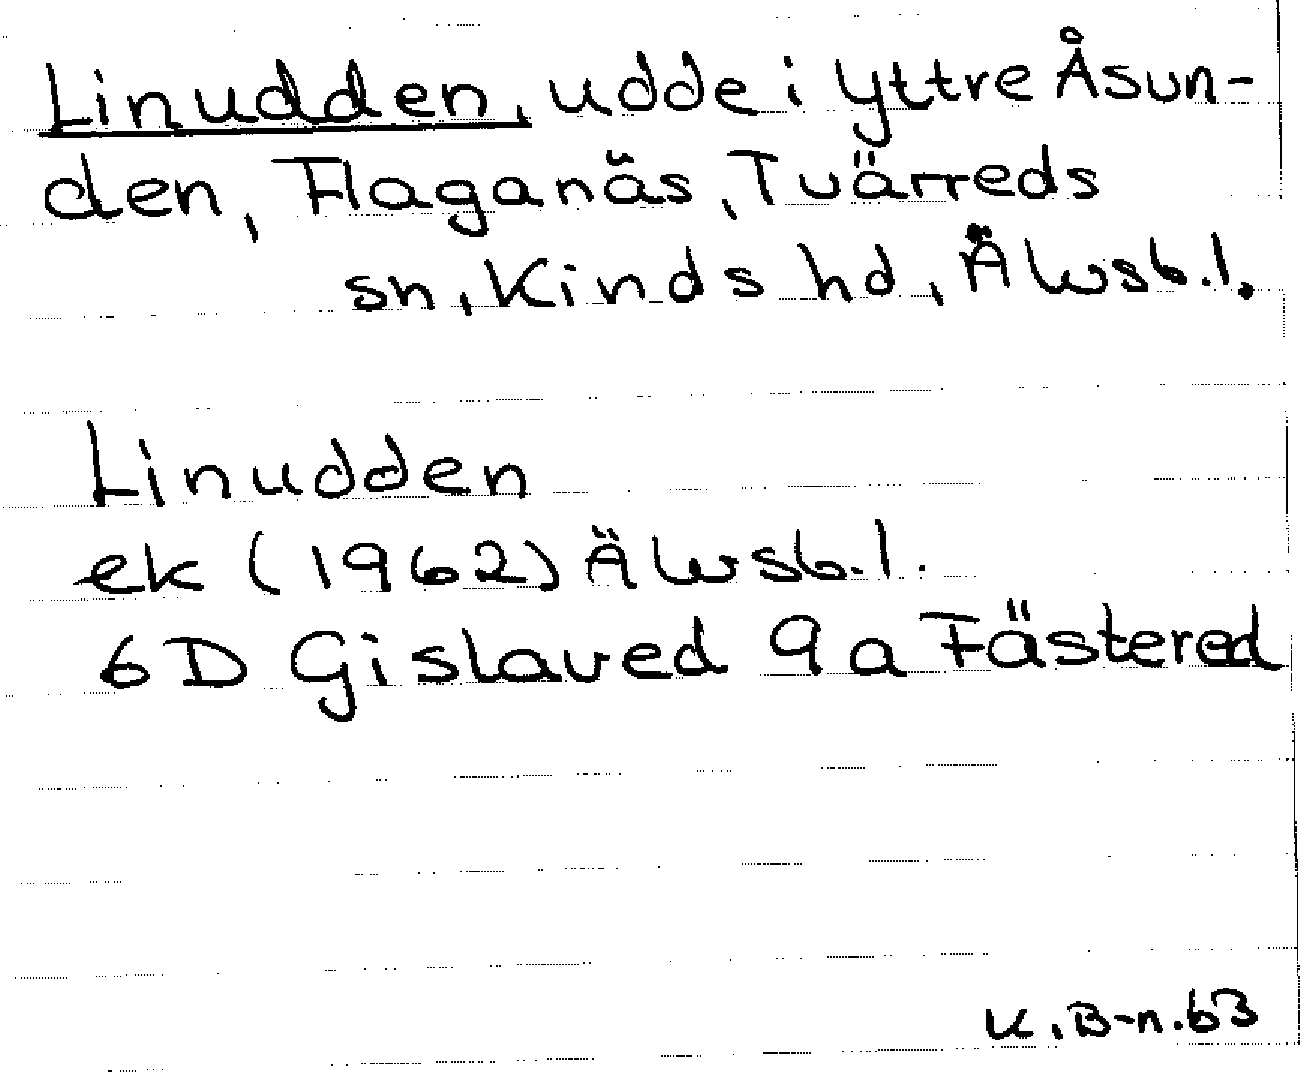 Linudden, udde i Yttre Åsun-
den, Flaganäs, Tvärreds
sn, Kinds hd, Älvsb.l.
Linudden
ek (1962) Älvsb.l.
6D Gislaved 9a Fästered
K.B-n.63